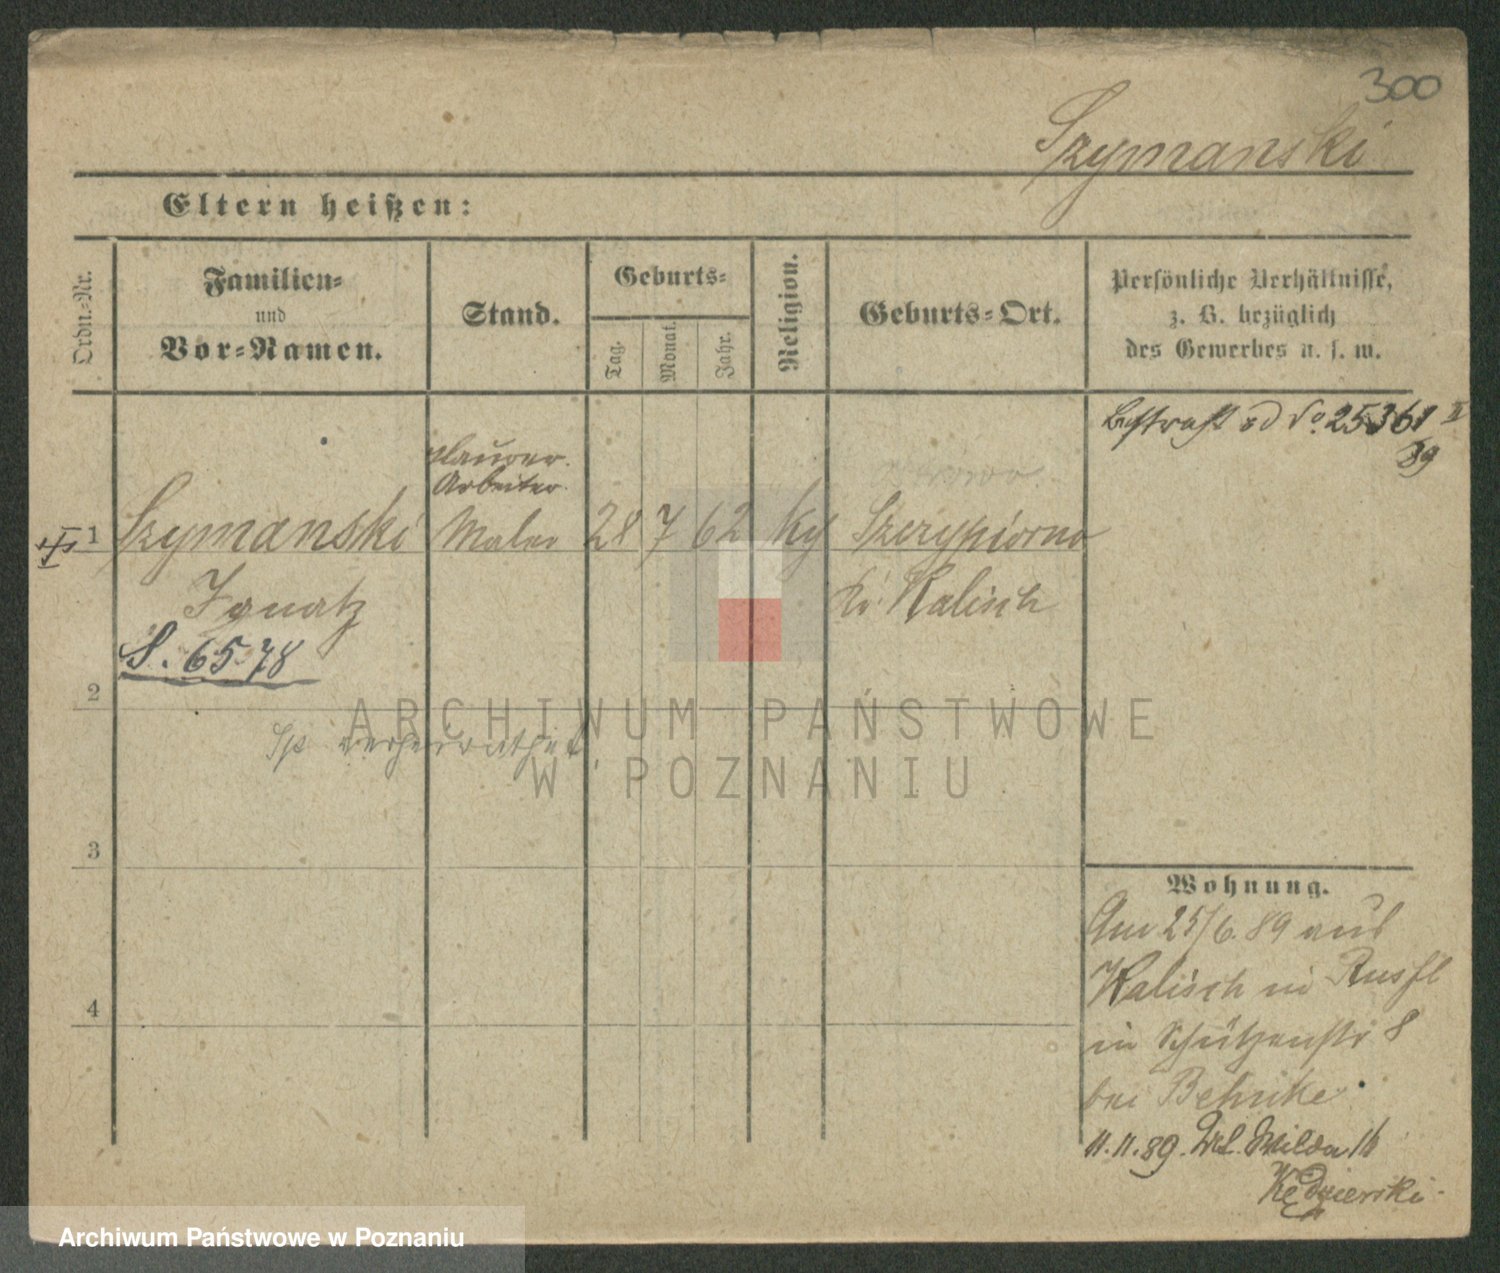 300
Szymanski
Eltern heißen:
Ordn.-Nr.
Familien-
und
Vor-Namen.
Stand.
Geburts-
Tag.
Monat.
Jahr.
Religion.
Geburts-Ort.
Persönliche Verhältnisse,
z. B. bezüglich
des Gewerbes u. s. w.
Bestraft No. 25361 II
89
Maurer.
Arbeiter.
1
Szymanski
Maler
28
7
62
Kg
Szczypiorno
Kr. Kalisch
Ignatz
S. 6578
2
verheirathet
3
4
Wohnung.
Am 25/6. 89 aus
Kalisch in Russl
in Schützenstr 8
bei Behnke
11.11.89. Wilda 16
Kędzierski.
ARCHIWUM PAŃSTWOWE
W POZNANIU
Archiwum Państwowe w Poznaniu